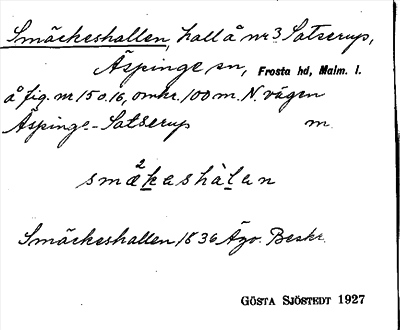 Smäckeshallen, hall å nr 3 Satserup,
Äspinge sn, Frosta hd, Malm. l.
å fig. nr 15 o. 16, omkr. 100 m. N. vägen
Äspinge-Satserup m.
smæ²kashàlan
Smäckeshallen 1836 Ägo. Beskr.
GÖSTA SJÖSTEDT 1927